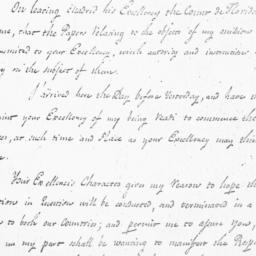 On leaving Madrid his Excellency the Comt de Florida
me, that the Papers relating to the objects of my
mitted to your Excellency, with authority and instructions
on the subject of them.
I arrived here the Day before Yesterday, and have
your Excellency of my being ready to commence the
at such time and Place as your Excellency may
Your Excellencis Character gives my Reason to hope
in Question will be conducted, and terminated in a
to both our Countries; and permit me to assure you,
on my part shall be wanting to manifest the Resp